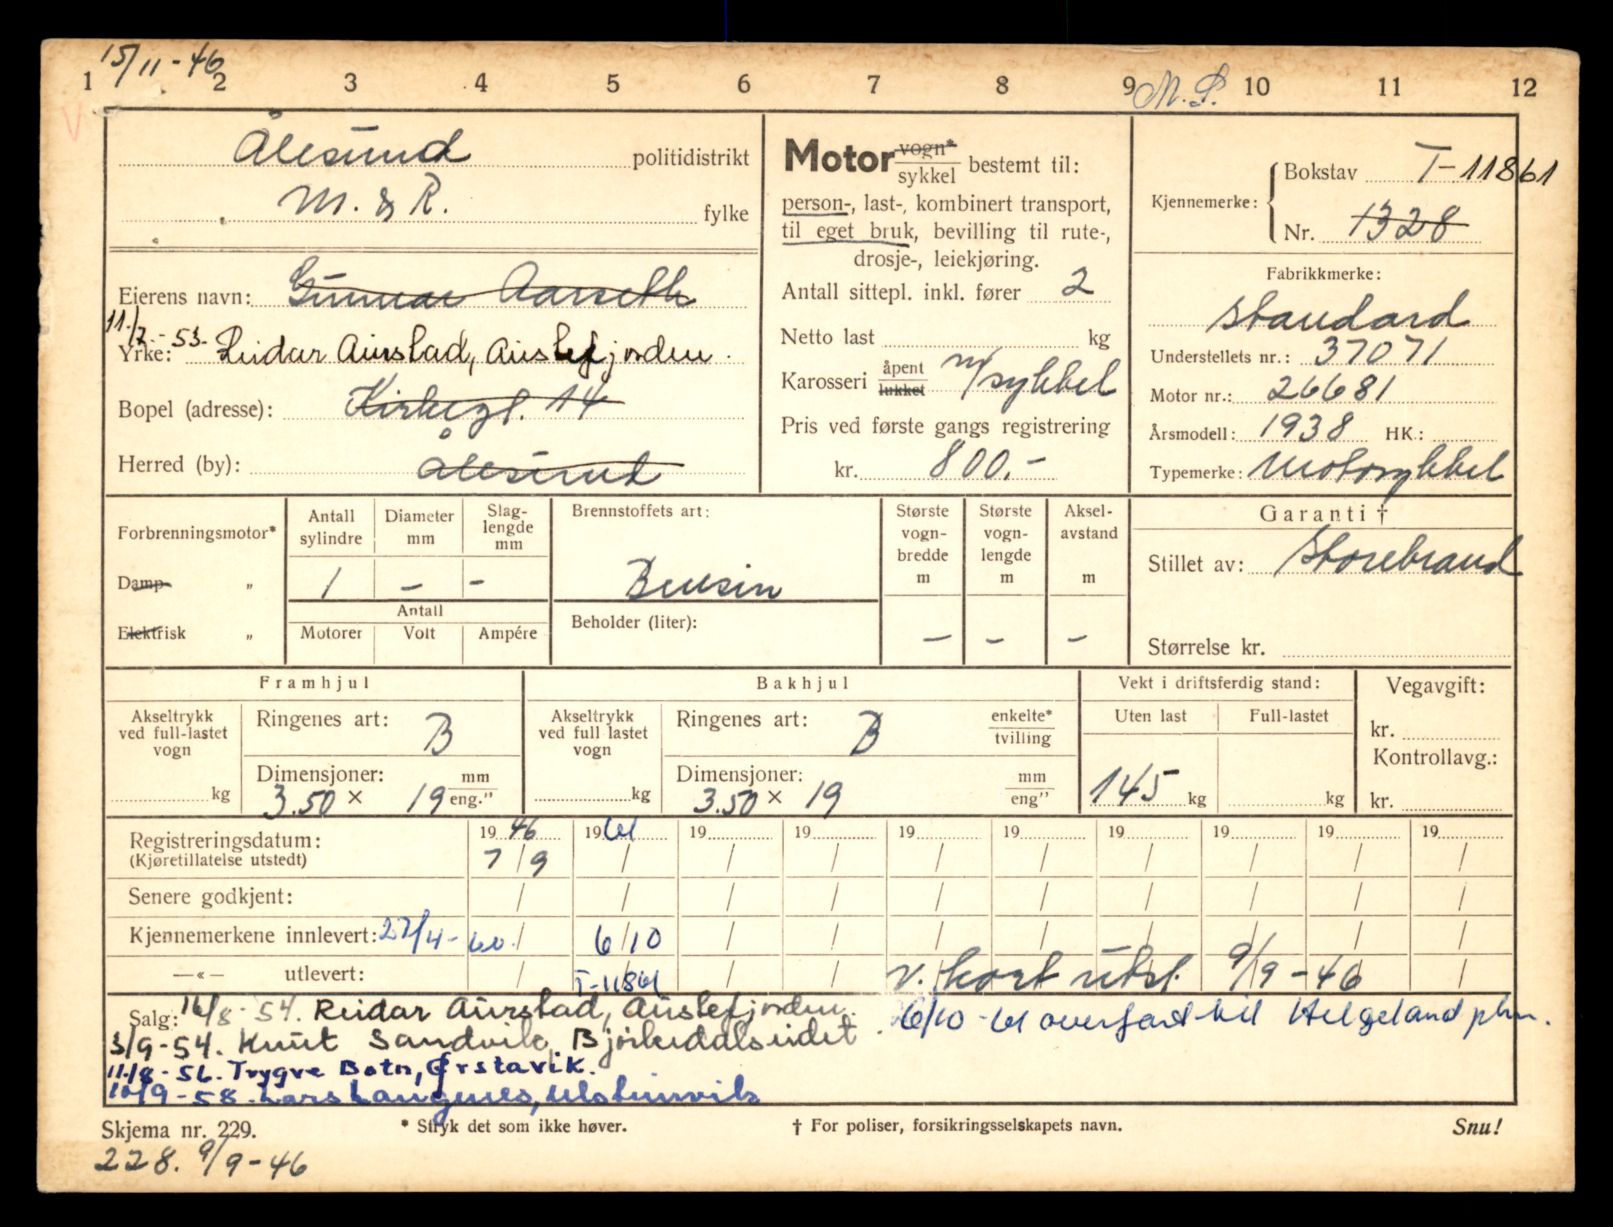 15/11-46
1 2 3 4 5 6 7 8 9 M.S. 10 11 12
V
Ålesund politidistrikt
M. & R. fylke
Eierens navn: Gunnar Aarseth
11/7-53.
Yrke: Reidar Aurstad, Austefjorden.
Bopel (adresse): Kirkegt. 14
Herred (by): Ålesund
Motor vogn*/sykkel bestemt til:
person-, last-, kombinert transport,
til eget bruk, bevilling til rute-,
drosje-, leiekjøring.
Antall sittepl. inkl. fører 2
Netto last kg
Karosseri åpent/lukket m/sykkel
Pris ved første gangs registrering
kr. 800.-
Kjennemerke: Bokstav T-11861
Nr. 1328
Fabrikkmerke:
Standard
Understellets nr.: 37071
Motor nr.: 26681
Årsmodell: 1938 HK.:
Typemerke: Motorsykkel
Forbrenningsmotor*
Damp "
Elektrisk "
Antall sylindre Diameter mm Slaglengde mm
1 - -
Antall
Motorer Volt Ampére
Brennstoffets art:
Bensin
Beholder (liter):
Største vogn-bredde m Største vogn-lengde m Aksel-avstand m
- - -
Garanti †
Stillet av: Storebrand
Størrelse kr.
Framhjul
Akseltrykk ved full-lastet vogn kg
Ringenes art: B
Dimensjoner: mm
3.50 x 19 eng."
Bakhjul
Akseltrykk ved full lastet vogn kg
Ringenes art: B enkelte*/tvilling
Dimensjoner: mm
3.50 x 19 eng"
Vekt i driftsferdig stand:
Uten last Full-lastet
145 kg kg
Vegavgift:
kr.
Kontrollavg.:
kr.
Registreringsdatum: 1946 1961 19 19 19 19 19 19 19 19
(Kjøretillatelse utstedt) 7/9 / / / / / / / / /
Senere godkjent: / / / / / / / / / /
Kjennemerkene innlevert: 27/4-60. / 6/10 / / / / / / / /
—«— utlevert: / T-11861 / / v. kort utst. 9/9-46 /
Salg: 16/8-54. Reidar Aurstad, Austefjorden. 6/10-61 overført til Helgeland pkm.
3/9-54. Knut Sandvik, Bjørkedalseidet
11/8-56. Trygve Botn, Ørstavik.
10/9-58. Lars Langenes, Ulsteinvik
Skjema nr. 229. * Stryk det som ikke høver. † For poliser, forsikringsselskapets navn. Snu!
228. 9/9-46